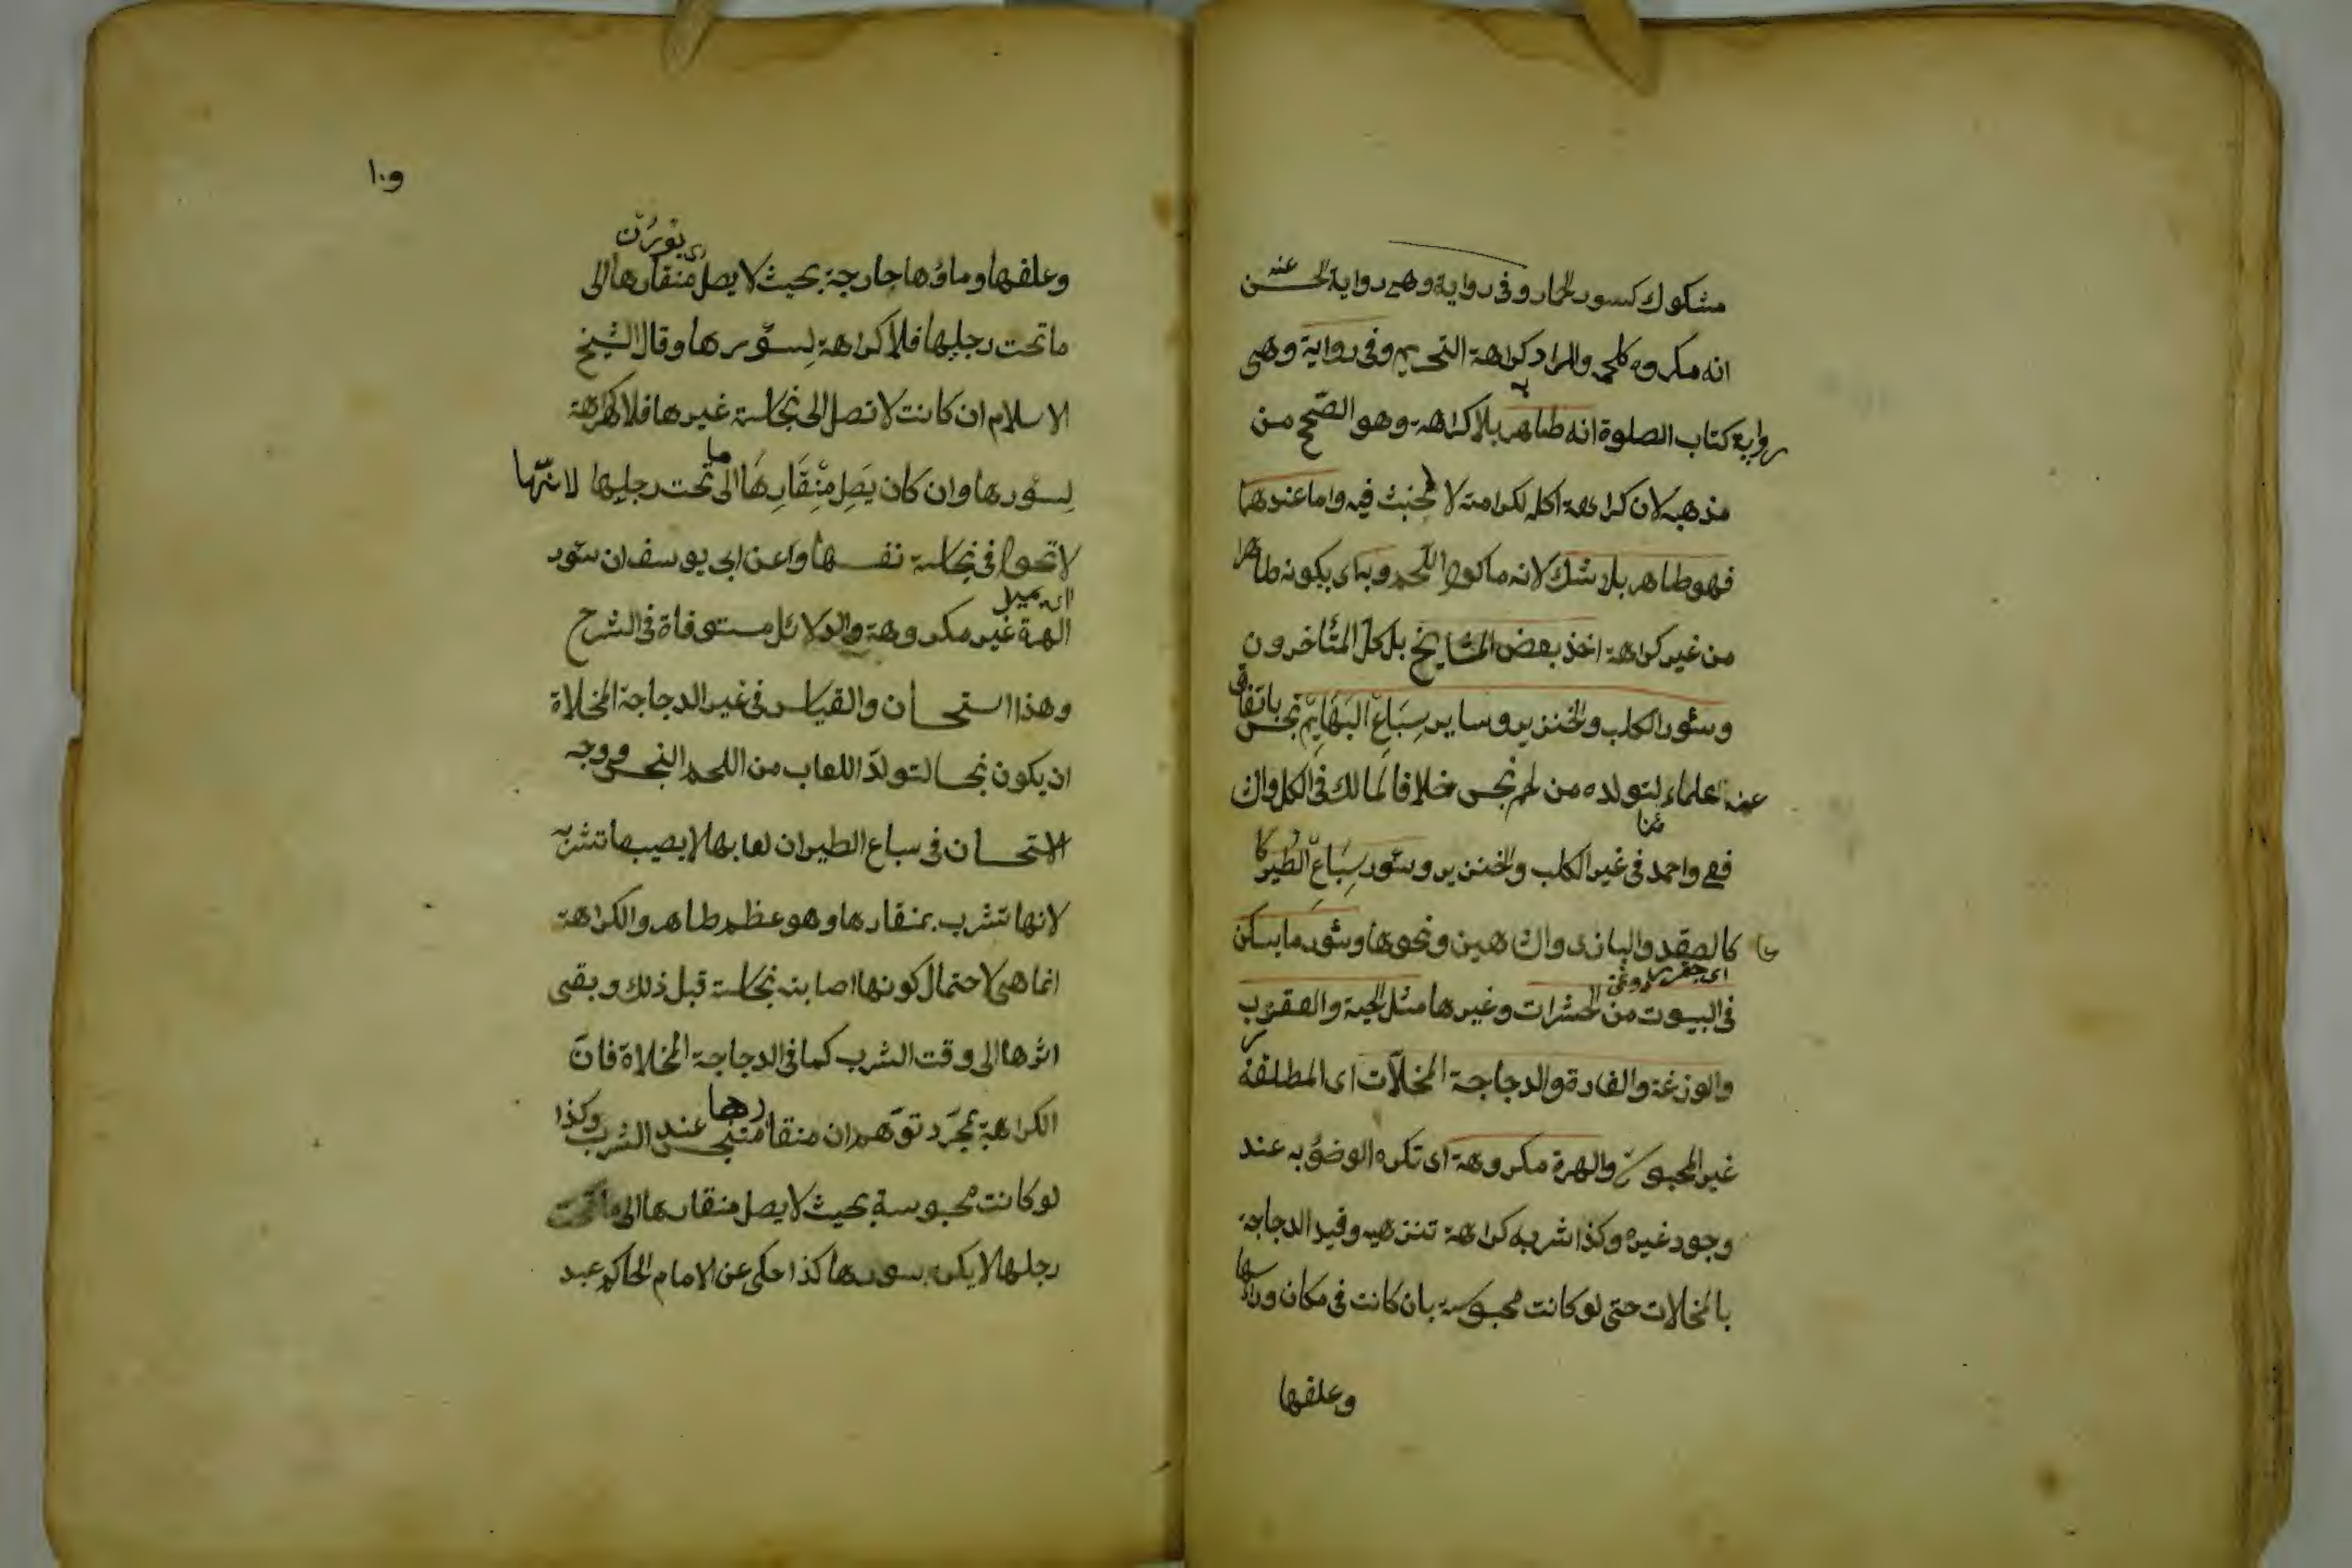 مشكوك كسور الحمار وفى رواية وهى رواية الحسن عنه
انه مكروه كلحمه والمراد كراهة التحريم وفى رواية وهى
رواية كتاب الصلوة انه طاهر بلا كراهة وهو الصحيح من
مذهبه لان كراهة اكله لكرامته لا لخبث فيه واما عندهما
فهو طاهر بلا شك لانه ماكول اللحم وبه اى بكونه طاهرا
من غير كراهة اخذ بعض المشايخ بل كل المتأخرون
وسئور الكلب والخنزير وساير سِبَاعِ البَهَايِمْ نجس باتفاق
علمائنا لتولده من لحم نجس خلافا لمالك فى الكل والشا
فعى واحمد فى غير الكلب والخنزير وسئور سِبَاعِ الطُيُر كا
كالصقر والبازى والشاهين ونحوها وسئور ما يسكن
فى البيوت من الحشرات وغيرها مثل الحية والعقرب
والوزغة والفارة والدجاجة المخلآت اى المطلقة
غير المحبوس والهرة مكروهة اى تكره الوضؤ به عند
وجود غيره وكذا شربه كراهة تنزهيه وقيد الدجاجة
بالمخلات حتى لو كانت محبوسة بان كانت فى مكان وراسها
وعلفها
١٠٩
وعلفها وماؤها خارجة بحيث لا يصل منقارها الى
ما تحت رجليها فلا كراهة لسؤرها وقال الشيخ
الاسلام ان كانت لا تصل الى نجاسة غيرها فلا كراهة
لِسؤرها وان كان يَصِل مِنْقَارِهَا الى ما تحت رجليها لانّها
لا تجول فى نجاسة نفسها وعن ابى يوسف ان سئور
الهرة غير مكروهة والدلائل مستوفاة فى الشرح
وهذا استحسان والقياس فى غير الدجاجة المخلاة
ان يكون نجسا لتولدّ اللعاب من اللحم النجس ووجه
الاستحسان فى سباع الطير ان لعابها لا يصيب ما تشربه
لانها تشرب بمنقارها وهو عظم طاهر والكراهة
انما هى لاحتمال كونها اصابته نجاسة قبل ذلك وبقى
اثرها الى وقت الشرب كما فى الدجاجة المخلاة فانّ
الكراهة بمجرّد توّهم ان منقارها متنجس عند الشرب وكذا
لو كانت محبوسة بحيث لا يصل منقارها الى ما تحت
رجلها لا يكره سورها كذا حكى عن الامام الحاكم عبد